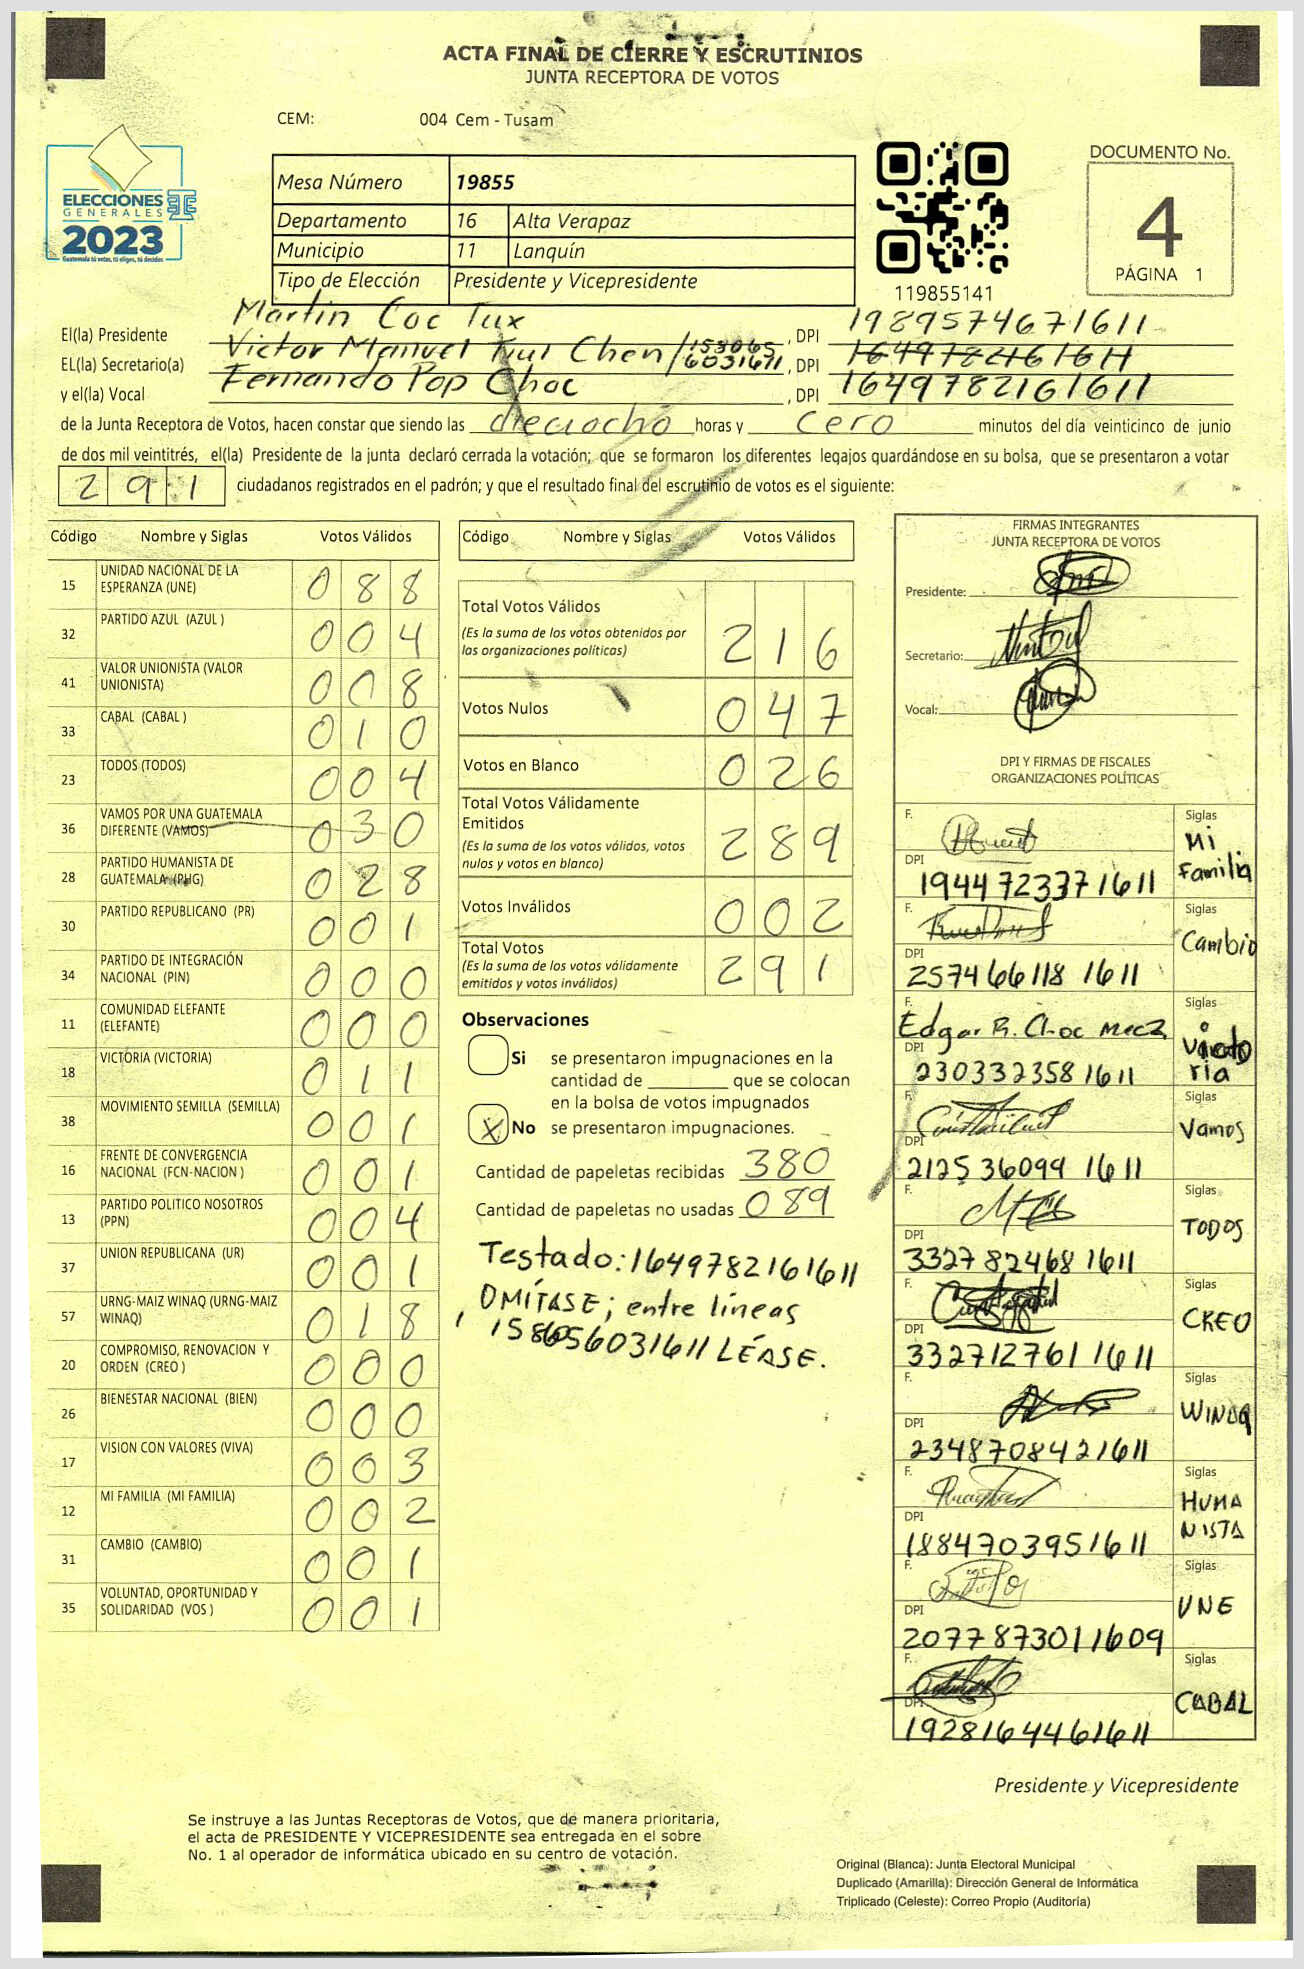 ACTA FINAL DE CIERRE Y ESCRUTINIOS
JUNTA RECEPTORA DE VOTOS
CEM: 004 Cem - Tusam
ELECCIONES
GENERALES
2023
Guatemala tú votas, tú eliges, tú decides
Mesa Número 19855
Departamento 16 Alta Verapaz
Municipio 11 Lanquín
Tipo de Elección Presidente y Vicepresidente
119855141
DOCUMENTO No.
4
PÁGINA 1
El(la) Presidente Martin Coc Tux , DPI 1989574671611
EL(la) Secretario(a) Victor Manuel Chen , DPI 1649782161611
y el(la) Vocal Fernando Pop Choc , DPI 1649782161611
de la Junta Receptora de Votos, hacen constar que siendo las dieciocho horas y cero minutos del día veinticinco de junio
de dos mil veintitrés, el(la) Presidente de la junta declaró cerrada la votación; que se formaron los diferentes legajos guardándose en su bolsa, que se presentaron a votar
291 ciudadanos registrados en el padrón; y que el resultado final del escrutinio de votos es el siguiente:
Código Nombre y Siglas Votos Válidos
15 UNIDAD NACIONAL DE LA ESPERANZA (UNE) 088
32 PARTIDO AZUL (AZUL ) 004
41 VALOR UNIONISTA (VALOR UNIONISTA) 008
33 CABAL (CABAL ) 010
23 TODOS (TODOS) 004
36 VAMOS POR UNA GUATEMALA DIFERENTE (VAMOS) 030
28 PARTIDO HUMANISTA DE GUATEMALA (PHG) 028
30 PARTIDO REPUBLICANO (PR) 001
34 PARTIDO DE INTEGRACIÓN NACIONAL (PIN) 000
11 COMUNIDAD ELEFANTE (ELEFANTE) 000
18 VICTORIA (VICTORIA) 011
38 MOVIMIENTO SEMILLA (SEMILLA) 001
16 FRENTE DE CONVERGENCIA NACIONAL (FCN-NACION ) 001
13 PARTIDO POLITICO NOSOTROS (PPN) 004
37 UNION REPUBLICANA (UR) 001
57 URNG-MAIZ WINAQ (URNG-MAIZ WINAQ) 018
20 COMPROMISO, RENOVACION Y ORDEN (CREO ) 000
26 BIENESTAR NACIONAL (BIEN) 000
17 VISION CON VALORES (VIVA) 003
12 MI FAMILIA (MI FAMILIA) 002
31 CAMBIO (CAMBIO) 001
35 VOLUNTAD, OPORTUNIDAD Y SOLIDARIDAD (VOS ) 001
Código Nombre y Siglas Votos Válidos
Total Votos Válidos
(Es la suma de los votos obtenidos por
las organizaciones políticas) 216
Votos Nulos 047
Votos en Blanco 026
Total Votos Válidamente
Emitidos
(Es la suma de los votos válidos, votos
nulos y votos en blanco) 289
Votos Inválidos 002
Total Votos
(Es la suma de los votos válidamente
emitidos y votos inválidos) 291
Observaciones
Si se presentaron impugnaciones en la
cantidad de ________ que se colocan
en la bolsa de votos impugnados
X No se presentaron impugnaciones.
Cantidad de papeletas recibidas 380
Cantidad de papeletas no usadas 089
Testado: 1649782161611
OMÍTASE; entre líneas
LÉASE.
FIRMAS INTEGRANTES
JUNTA RECEPTORA DE VOTOS
Presidente:
Secretario:
Vocal:
DPI Y FIRMAS DE FISCALES
ORGANIZACIONES POLÍTICAS
F. Siglas Mi Familia
DPI 1944723371611
F. Siglas Cambio
DPI 2574661181611
F. Edgar R. Choc Siglas Victoria
DPI 2303323581611
F. Siglas Vamos
DPI 2125360991611
F. Siglas TODOS
DPI 3327824681611
F. Siglas CREO
DPI 3327127611611
F. Siglas WINAQ
DPI 2348708421611
F. Siglas HUMANISTA
DPI 1884703951611
F. Siglas UNE
DPI 2077873011609
F. Siglas CABAL
DPI 1928164461611
Presidente y Vicepresidente
Se instruye a las Juntas Receptoras de Votos, que de manera prioritaria,
el acta de PRESIDENTE Y VICEPRESIDENTE sea entregada en el sobre
No. 1 al operador de informática ubicado en su centro de votación.
Original (Blanca): Junta Electoral Municipal
Duplicado (Amarilla): Dirección General de Informática
Triplicado (Celeste): Correo Propio (Auditoría)